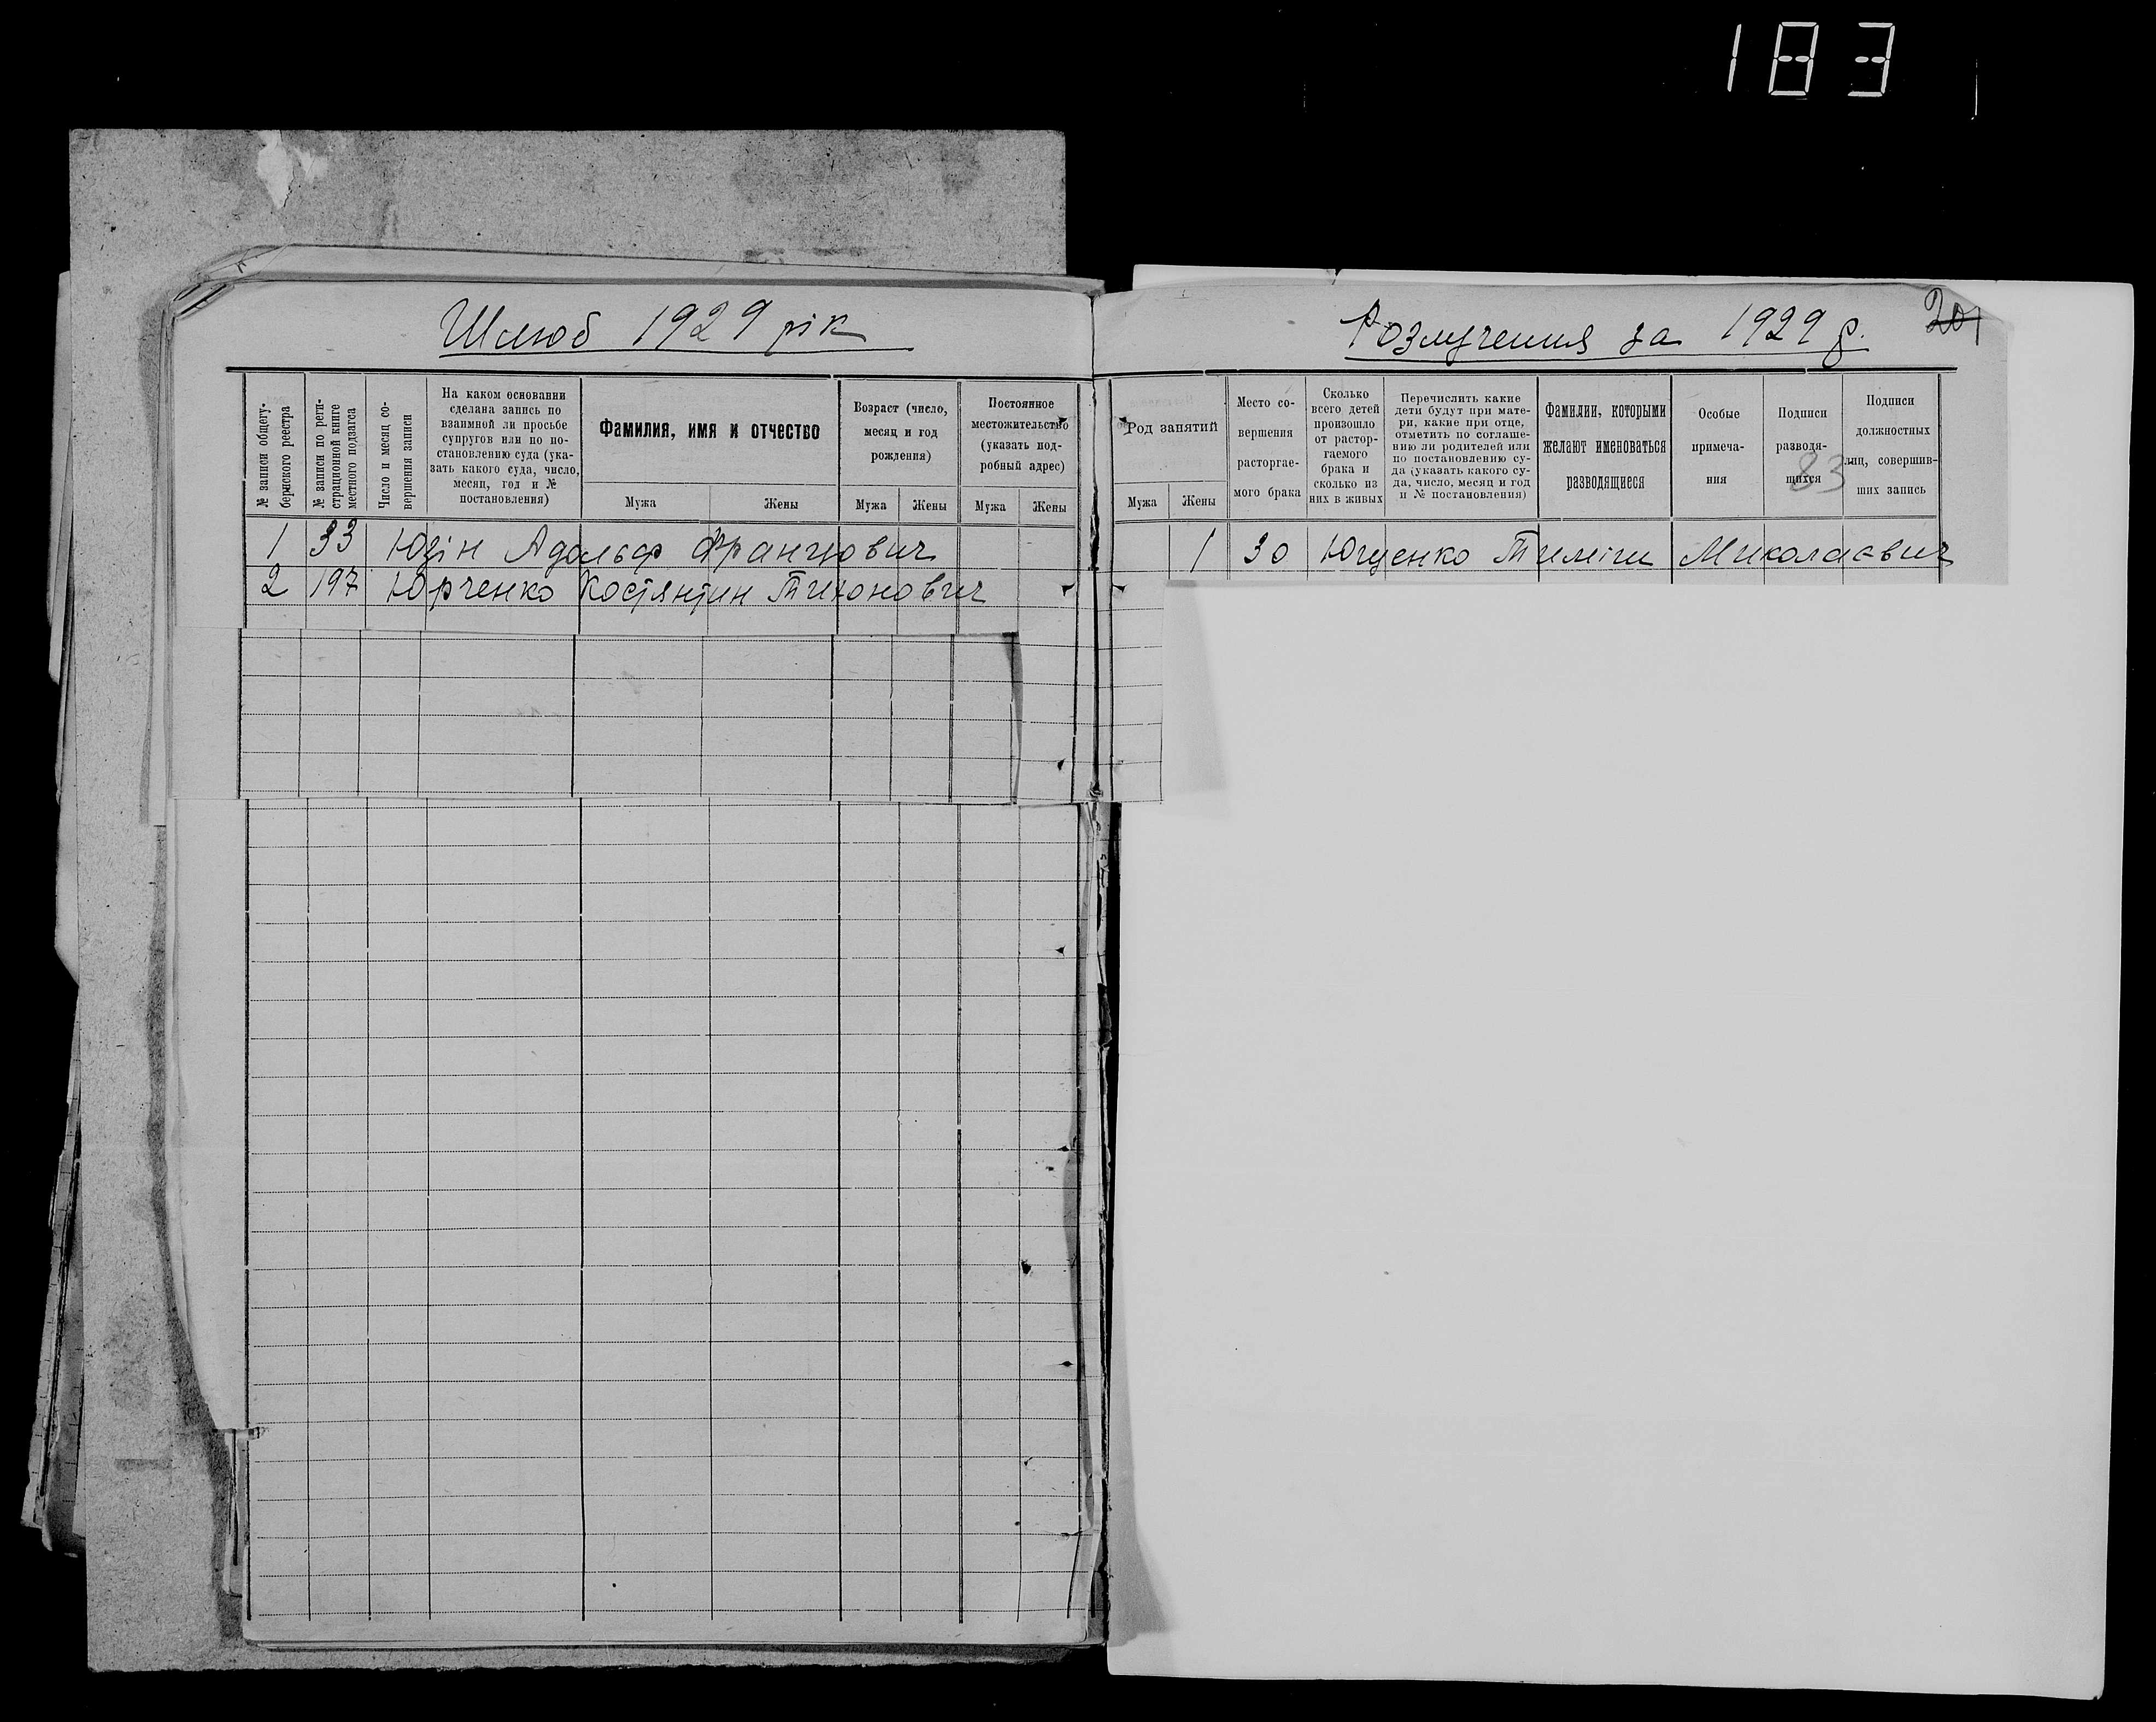 183
Шлюб 1929 рік
№ записи общегу-
бернского реестра
№ записи по реги-
страционной книге
местного подзагса
Число и месяц со-
вершения записи
На каком основании
сделана запись по
взаимной ли просьбе
супругов или по по-
становлению суда (ука-
зать какого суда, число,
месяц, год и №
постановления)
Фамилия, имя и отчество
Мужа Жены
Возраст (число,
месяц и год
рождения)
Мужа Жены
Постоянное
местожительство
(указать под-
робный адрес)
Мужа Жены
1 33 Юзін Адольф Францович
2 197 Юрченко Костянтин Тихонович
Розлучения за 1929 р.
201
Род занятий
Мужа Жены
Место со-
вершения
расторгае-
мого брака
Сколько
всего детей
произошло
от растор-
гаемого
брака и
сколько из
них в живых
Перечислить какие
дети будут при мате-
ри, какие при отце,
отметить по соглаше-
нию ли родителей или
по постановлению су-
да (указать какого су-
да, число, месяц и год
и № постановления)
Фамилии, которыми
желают именоваться
разводящиеся
Особые
примеча-
ния
Подписи
разводя-
щихся
83
Подписи
должностных
лиц, совершив-
ших запись
1 30 Ющенко Миколаевич